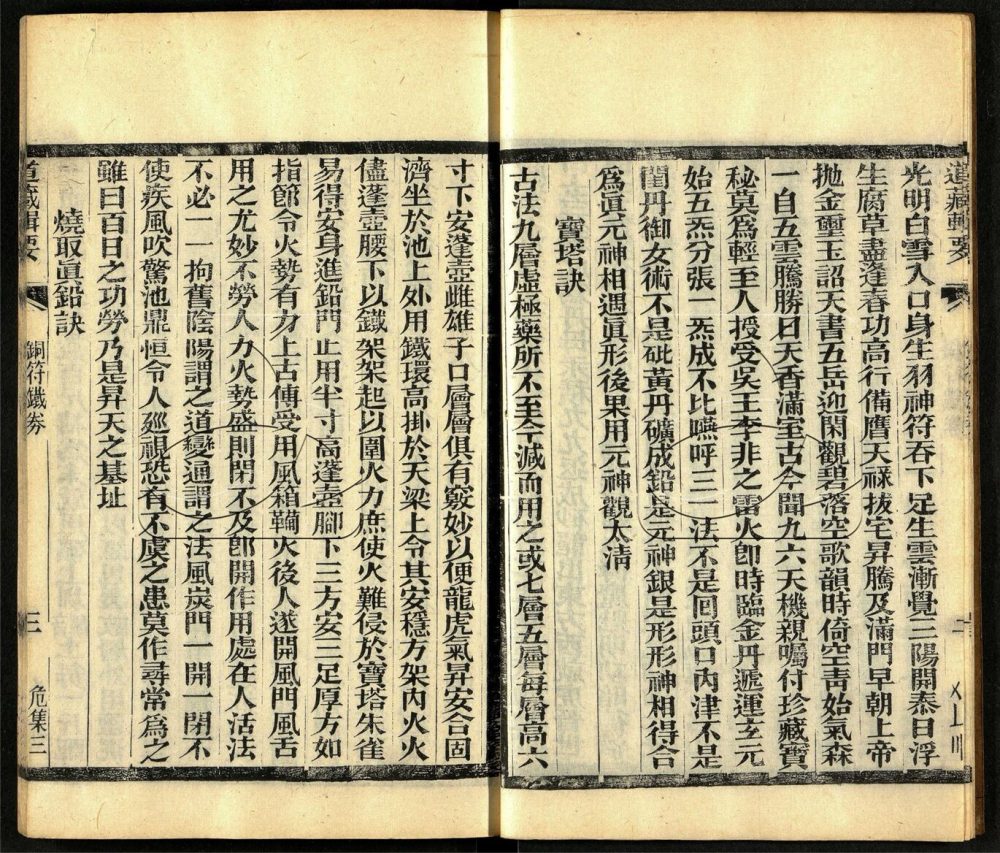 道藏輯要
光明白雪入口身生羽神符吞下足生雲漸覺三陽開泰日浮
生腐草盡逢春功高行備膺天祿拔宅昇騰及滿門早朝上帝
拋金璽玉詔天書五岳迎閑觀碧落空歌韻時倚空青始氣森
一自五雲騰勝日天香滿室古今聞九六天機親囑付珍藏寶
秘莫爲輕至人授受吳王李非之雷火卽時臨金丹遞運玄元
始五炁分張一炁成不比嚥呼三一法不是囘頭口內津不是
閨丹御女術不是砒黃丹礦成鉛是元神銀是形形神相得合
爲眞元神相遇眞形後果用元神觀太清
寶塔訣
古法九層虛極藥所不至今減而用之或七層五層每層高六
寸下安蓬壺雌雄子口層層俱有竅妙以便龍虎氣昇安合固
濟坐於池上外用鐵環高掛於天梁上令其安穩方架內火火
儘蓬壺腰下以鐵架架起以圍火力庶使火難侵於寶塔朱雀
易得安身進鉛門止用半寸高蓬壺腳下三方安三足厚方如
指節令火勢有力上古傳受用風箱鞴火後人遂開風門風舌
用之尤妙不勞人力火勢盛則閉不及卽開作用處在人活法
不必一一拘舊陰陽謂之道變通謂之法風炭門一開一閉不
使疾風吹驚池鼎恒令人廵視恐有不虞之患莫作尋常爲之
雖曰百日之功勞乃是昇天之基址
燒取眞鉛訣
道藏輯要
銅符鐵券
三
危集三